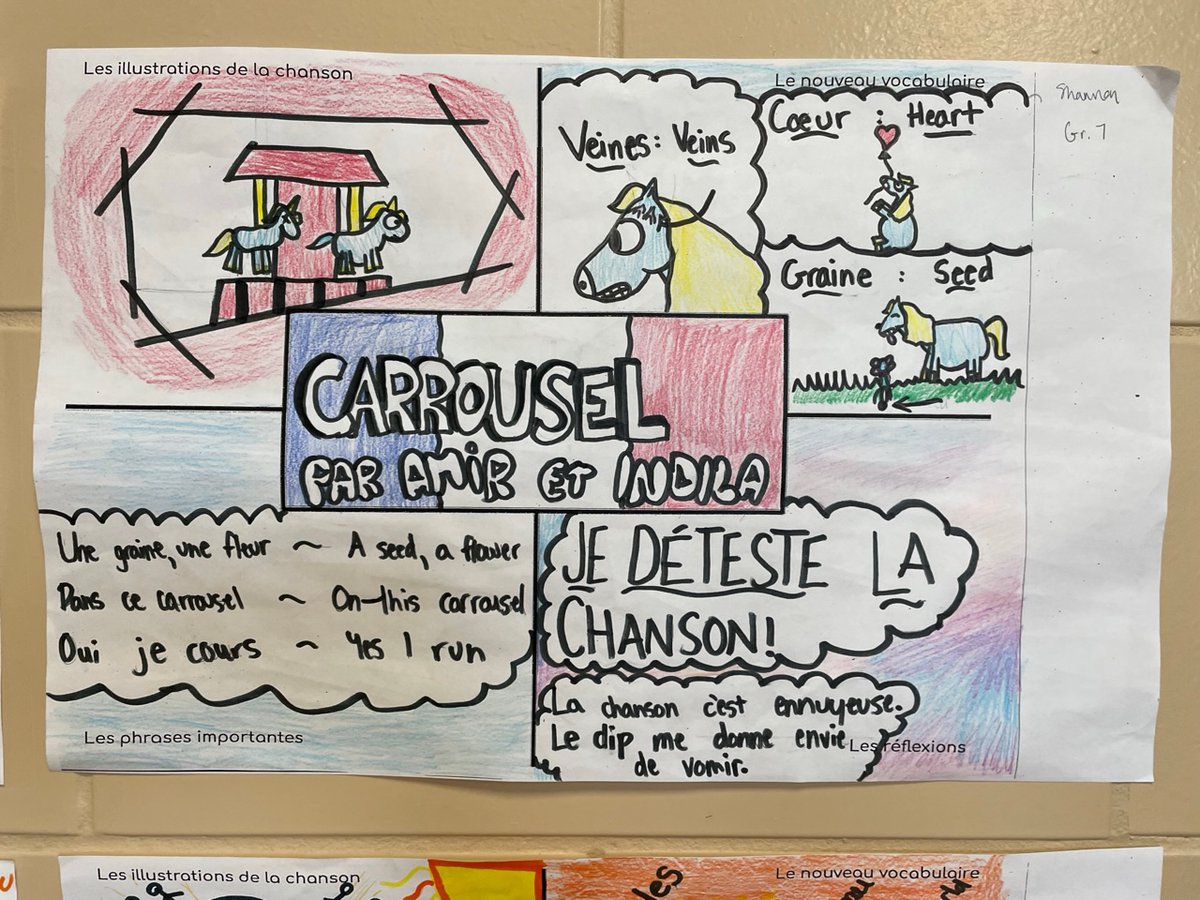 Les illustrations de la chanson
Le nouveau vocabulaire
Shannon
Gr. 7
Veines: Veins
Cœur : Heart
Graine : Seed
CARROUSEL
PAR AMIR ET INDILA
Une graine, une fleur ~ A seed, a flower
Dans ce carrousel ~ On this carrousel
Oui je cours ~ Yes I run
Les phrases importantes
JE DÉTESTE LA
CHANSON!
La chanson c'est ennuyeuse.
Le dip me donne envie
de vomir.
Les réflexions
Les illustrations de la chanson
Le nouveau vocabulaire